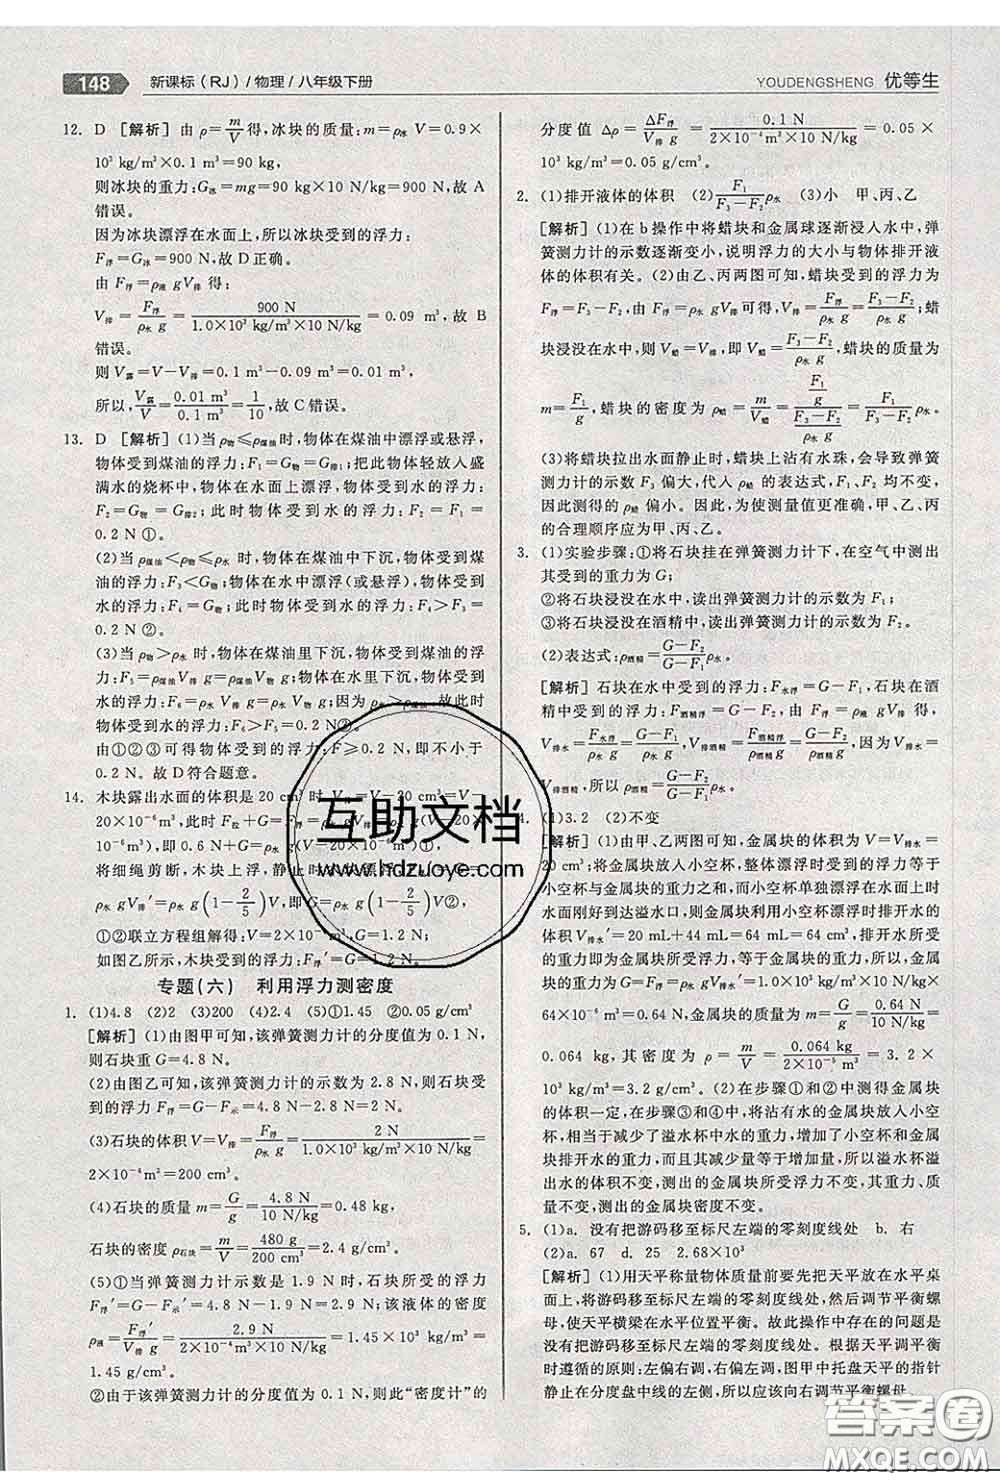 148 新课标（RJ）/物理/八年级下册
YOUDENGSHENG 优等生
12. D [解析] 由 ρ=m/V 得，冰块的质量：m=ρ水 V=0.9×
10³ kg/m³×0.1 m³=90 kg，
则冰块的重力：G冰=mg=90 kg×10 N/kg=900 N，故 A
错误。
因为冰块漂浮在水面上，所以冰块受到的浮力：
F浮=G冰=900 N，故 D正确。
由 F浮=ρ液 gV排 得：
V排=F浮/ρ水 g=900 N/1.0×10³ kg/m³×10 N/kg=0.09 m³，故 B
错误。
则 V露=V－V排=0.1 m³－0.09 m³=0.01 m³，
所以，V露/V=0.01 m³/0.1 m³=1/10，故C错误。
13. D [解析] (1)当 ρ物≤ρ煤油时，物体在煤油中漂浮或悬浮，
物体受到煤油的浮力：F₁=G物=G排₁；把此物体轻放入盛
满水的烧杯中，物体在水面上漂浮，物体受到水的浮力：
F₂=G物=G排₂；此时物体受到水的浮力：F₂=F₁=
0.2 N ①。
(2)当 ρ煤油<ρ物≤ρ水时，物体在煤油中下沉，物体受到煤
油的浮力：F₃<G物；物体在水中漂浮(或悬浮)，物体受到
水的浮力：F₄=G物；此时物体受到水的浮力：F₄>F₃=
0.2 N ②。
(3)当 ρ物>ρ水时，物体在煤油里下沉，物体受到煤油的
浮力：F₅=ρ煤油 gV排煤油=ρ煤油 gV物；物体在水里下沉，物体受到水的
浮力：F₆=ρ水 gV排=ρ水 gV物；因为ρ水>ρ煤油，故此时
物体受到水的浮力：F₆>F₅=0.2 N③。
由①②③可得物体受到的浮力：F≥0.2 N，即不小于
0.2 N。故 D符合题意。
14. 木块露出水面的体积是20 cm³时，V排=V－20 cm³=V－
20×10⁻⁶m³，此时 F拉+G=F浮，即0.6 N+G=ρ水 g(V－20×
10⁻⁶m³)①，
将细绳剪断，木块上浮，静止时
ρ水 gV排′=G，即ρ水 g(1－2/5)V=G②，
①②联立方程组解得：V=2×10⁻⁴m³，G=1.2 N；
如图乙所示，木块漂浮，F浮′=G=1.2 N。
专题(六) 利用浮力测密度
1. (1)4.8 (2)2 (3)200 (4)2.4 (5)①1.45 ②0.05 g/cm³
[解析] (1)由图甲可知，该弹簧测力计的分度值为0.1 N，
则石块重G=4.8 N。
(2)由图乙可知，该弹簧测力计的示数为 2.8 N，则石块受
F浮=G－F示=4.8 N－2.8 N=2 N。
(3)石块的体积V=V排=F浮/ρ水 g=2 N/1.0×10³ kg/m³×10 N/kg=
2×10⁻⁴m³=200 cm³，
(4)石块的质量 m=G/g=4.8 N/10 N/kg=0.48 kg=480 g，
石块的密度ρ石块=m/V=480 g/200 cm³=2.4 g/cm³，
(5)①当弹簧测力计示数是 1.9 N时，石块所受的浮力
F浮′=G－F示′=4.8 N－1.9 N=2.9 N；该液体的密度
ρ液=F浮′/V排 g=2.9 N/2×10⁻⁴m³×10 N/kg=1.45×10³ kg/m³。
②由于该弹簧测力计的分度值为0.1 N，则此“密度计”的
分度值 Δρ=ΔF浮/V排 g=0.1 N/2×10⁻⁴m³×10 N/kg=0.05×
10³ kg/m³=0.05 g/cm³。
2. (1)排开液体的体积 (2)F₁/F₃－F₂ ρ水 (3)小 甲、丙、乙
[解析] (1)在 b 操作中将蜡块和金属球逐渐浸入水中，弹
簧测力计的示数逐渐变小，说明浮力的大小与物体排开液
体的体积有关。(2)由乙、丙两图可知，蜡块受到的浮力为
F浮=F₃－F₂，由F浮=ρ水 gV排可得，V排=F浮/ρ水 g=F₃－F₂/ρ水 g；蜡
块浸没在水中，则有V蜡=V排，即V蜡=F₃－F₂/ρ水 g，蜡块的质量为
m=F₁/g，蜡块的密度为 ρ蜡=m/V=F₁/g/F₃－F₂/ρ水 g=F₁/F₃－F₂ ρ水。
(3)将蜡块拉出水面静止时，蜡块上沾有水珠，会导致弹簧
测力计的示数 F₃ 偏大，代入 ρ蜡的表达式，F₁、F₂ 均不变，
因此测得的 ρ蜡 偏小。为使测量值更准确，甲、乙、丙三图
的合理顺序应为甲、丙、乙。
3. (1)实验步骤：①将石块挂在弹簧测力计下，在空气中测出
其受到的重力为G；
②将石块浸没在水中，读出弹簧测力计的示数为 F₁；
③将石块浸没在酒精中，读出弹簧测力计的示数为F₂。
(2)表达式：ρ酒精=G－F₂/G－F₁ ρ水。
[解析] 石块在水中受到的浮力：F水浮=G－F₁，石块在酒
精中受到的浮力：F酒精浮=G－F₂，根据 F浮=ρ液 gV排得，
V排水=F水浮/ρ水 g=G－F₁/ρ水 g，V排酒精=F酒精浮/ρ酒精 g=G－F₂/ρ酒精 g，因为V排水=
V排酒精，所以 G－F₁/ρ水 g=G－F₂/ρ酒精 g，则ρ酒精=G－F₂/G－F₁ ρ水。
4. (1)3.2 (2)不变
[解析] 由甲、乙两图可知，金属块的体积为 V=V排=
20 cm³；将金属块放入小空杯，整体漂浮时受到的浮力等于
小空杯与金属块的重力之和，而小空杯单独漂浮时
水面刚好到达溢水口，则金属块利用小空杯漂浮时排开水的
体积V排水′=20 mL+44 mL=64 mL=64 cm³，金属块的重力
等于此时小空杯和金属块所受浮力，等于 ρ水 gV排水′=1.0×10³ kg/m³×10 N/kg×
64×10⁻⁶m³=0.64 N，金属块的质量为m=G/g=0.64 N/10 N/kg=
0.064 kg，金属块的密度为 ρ=m/V=0.064 kg/2×10⁻⁵ m³=3.2×
10³ kg/m³，(2)在步骤①和②中测得金属块
的体积一定，在步骤③和④中，将沾有水的金属块放入小空
杯，相当于减少了溢水杯中水的重力，增加了小空杯和金属
块排开水的重力，而且减少量等于增加量，所以溢水杯溢
出水的体积不变，测出的金属块质量不变。故此过程中，体
积、质量不变，测出的金属块密度不变。
5. (1)a. 没有把游码移至标尺左端的零刻度线处 b. 右
(2)a. 67 d. 25 2.68×10³
[解析] (1)用天平称量物体质量前要先把天平放在水平桌
面上，将游码移至标尺左端的零刻度线处，然后调节平衡螺
母，使天平横梁在水平位置平衡。故此操作中存在的问题是
没有把游码移至标尺左端的零刻度线处；根据天平调平衡
时遵循的原则：左偏右调，右偏左调，图甲中托盘天平的指针
偏在分度盘中线的左侧，所以应该向右调节平衡螺母。
互助文档
www.hdzuoye.com
答案圈
MXQE.COM